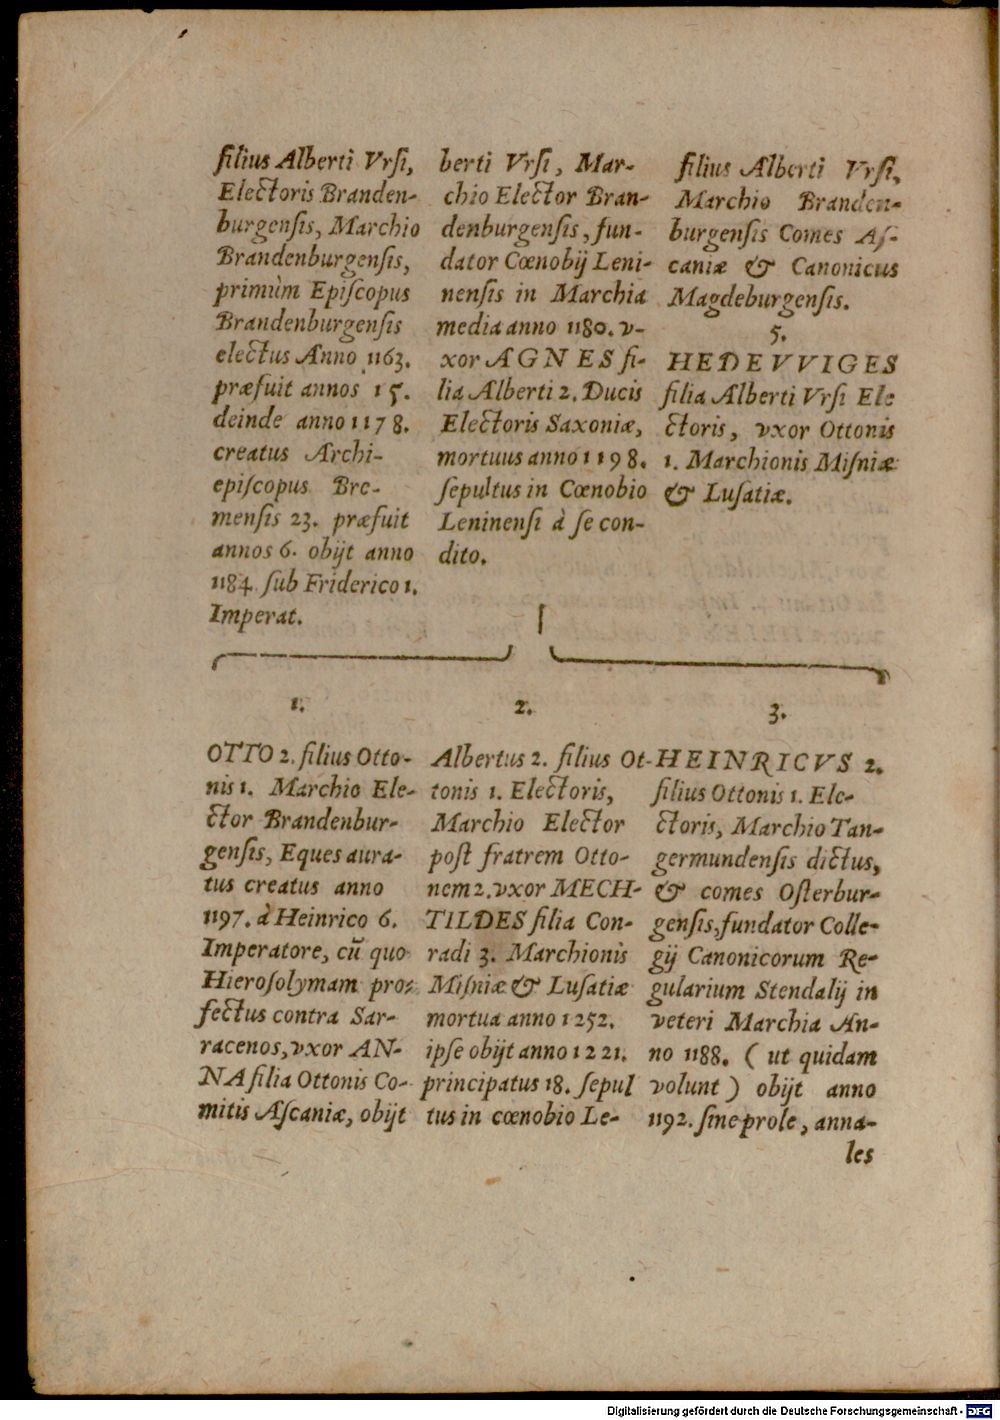 filius Alberti Vrſi,
Electoris Branden-
burgenſis, Marchio
Brandenburgenſis,
primùm Epiſcopus
Brandenburgenſis
electus Anno 1163.
præfuit annos 15.
deinde anno 1178.
creatus Archi-
epiſcopus Bre-
menſis 23. præfuit
annos 6. obijt anno
1184. ſub Friderico 1.
Imperat.
berti Vrſi, Mar-
chio Elector Bran-
denburgenſis, fun-
dator Cœnobij Leni-
nenſis in Marchia
media anno 1180. v-
xor AGNES fi-
lia Alberti 2. Ducis
Electoris Saxoniæ,
mortuus anno 1198.
ſepultus in Cœnobio
Leninenſi à ſe con-
dito.
filius Alberti Vrſi,
Marchio Branden-
burgenſis Comes Aſ-
caniæ & Canonicus
Magdeburgenſis.
5.
HEDEVVIGES
filia Alberti Vrſi Ele
ctoris, vxor Ottonis
1. Marchionis Miſniæ
& Luſatiæ.
1.
OTTO 2. filius Otto-
nis 1. Marchio Ele-
ctor Brandenbur-
genſis, Eques aura-
tus creatus anno
1197. à Heinrico 6.
Imperatore, cũ quo
Hieroſolymam pro-
fectus contra Sar-
racenos, vxor AN-
NA filia Ottonis Co-
mitis Aſcaniæ, obijt
2.
Albertus 2. filius Ot-
tonis 1. Electoris,
Marchio Elector
poſt fratrem Otto-
nem 2. vxor MECH-
TILDES filia Con-
radi 3. Marchionis
Miſniæ & Luſatiæ
mortua anno 1252.
ipſe obijt anno 1221.
principatus 18. ſepul
tus in cœnobio Le-
3.
HEINRICVS 2.
filius Ottonis 1. Ele-
ctoris, Marchio Tan-
germundenſis dictus,
& comes Oſterbur-
genſis, fundator Colle-
gij Canonicorum Re-
gularium Stendalij in
veteri Marchia An-
no 1188. (ut quidam
volunt) obijt anno
1192. ſine prole, anna-
les
Digitalisierung gefördert durch die Deutsche Forschungsgemeinschaft - DFG